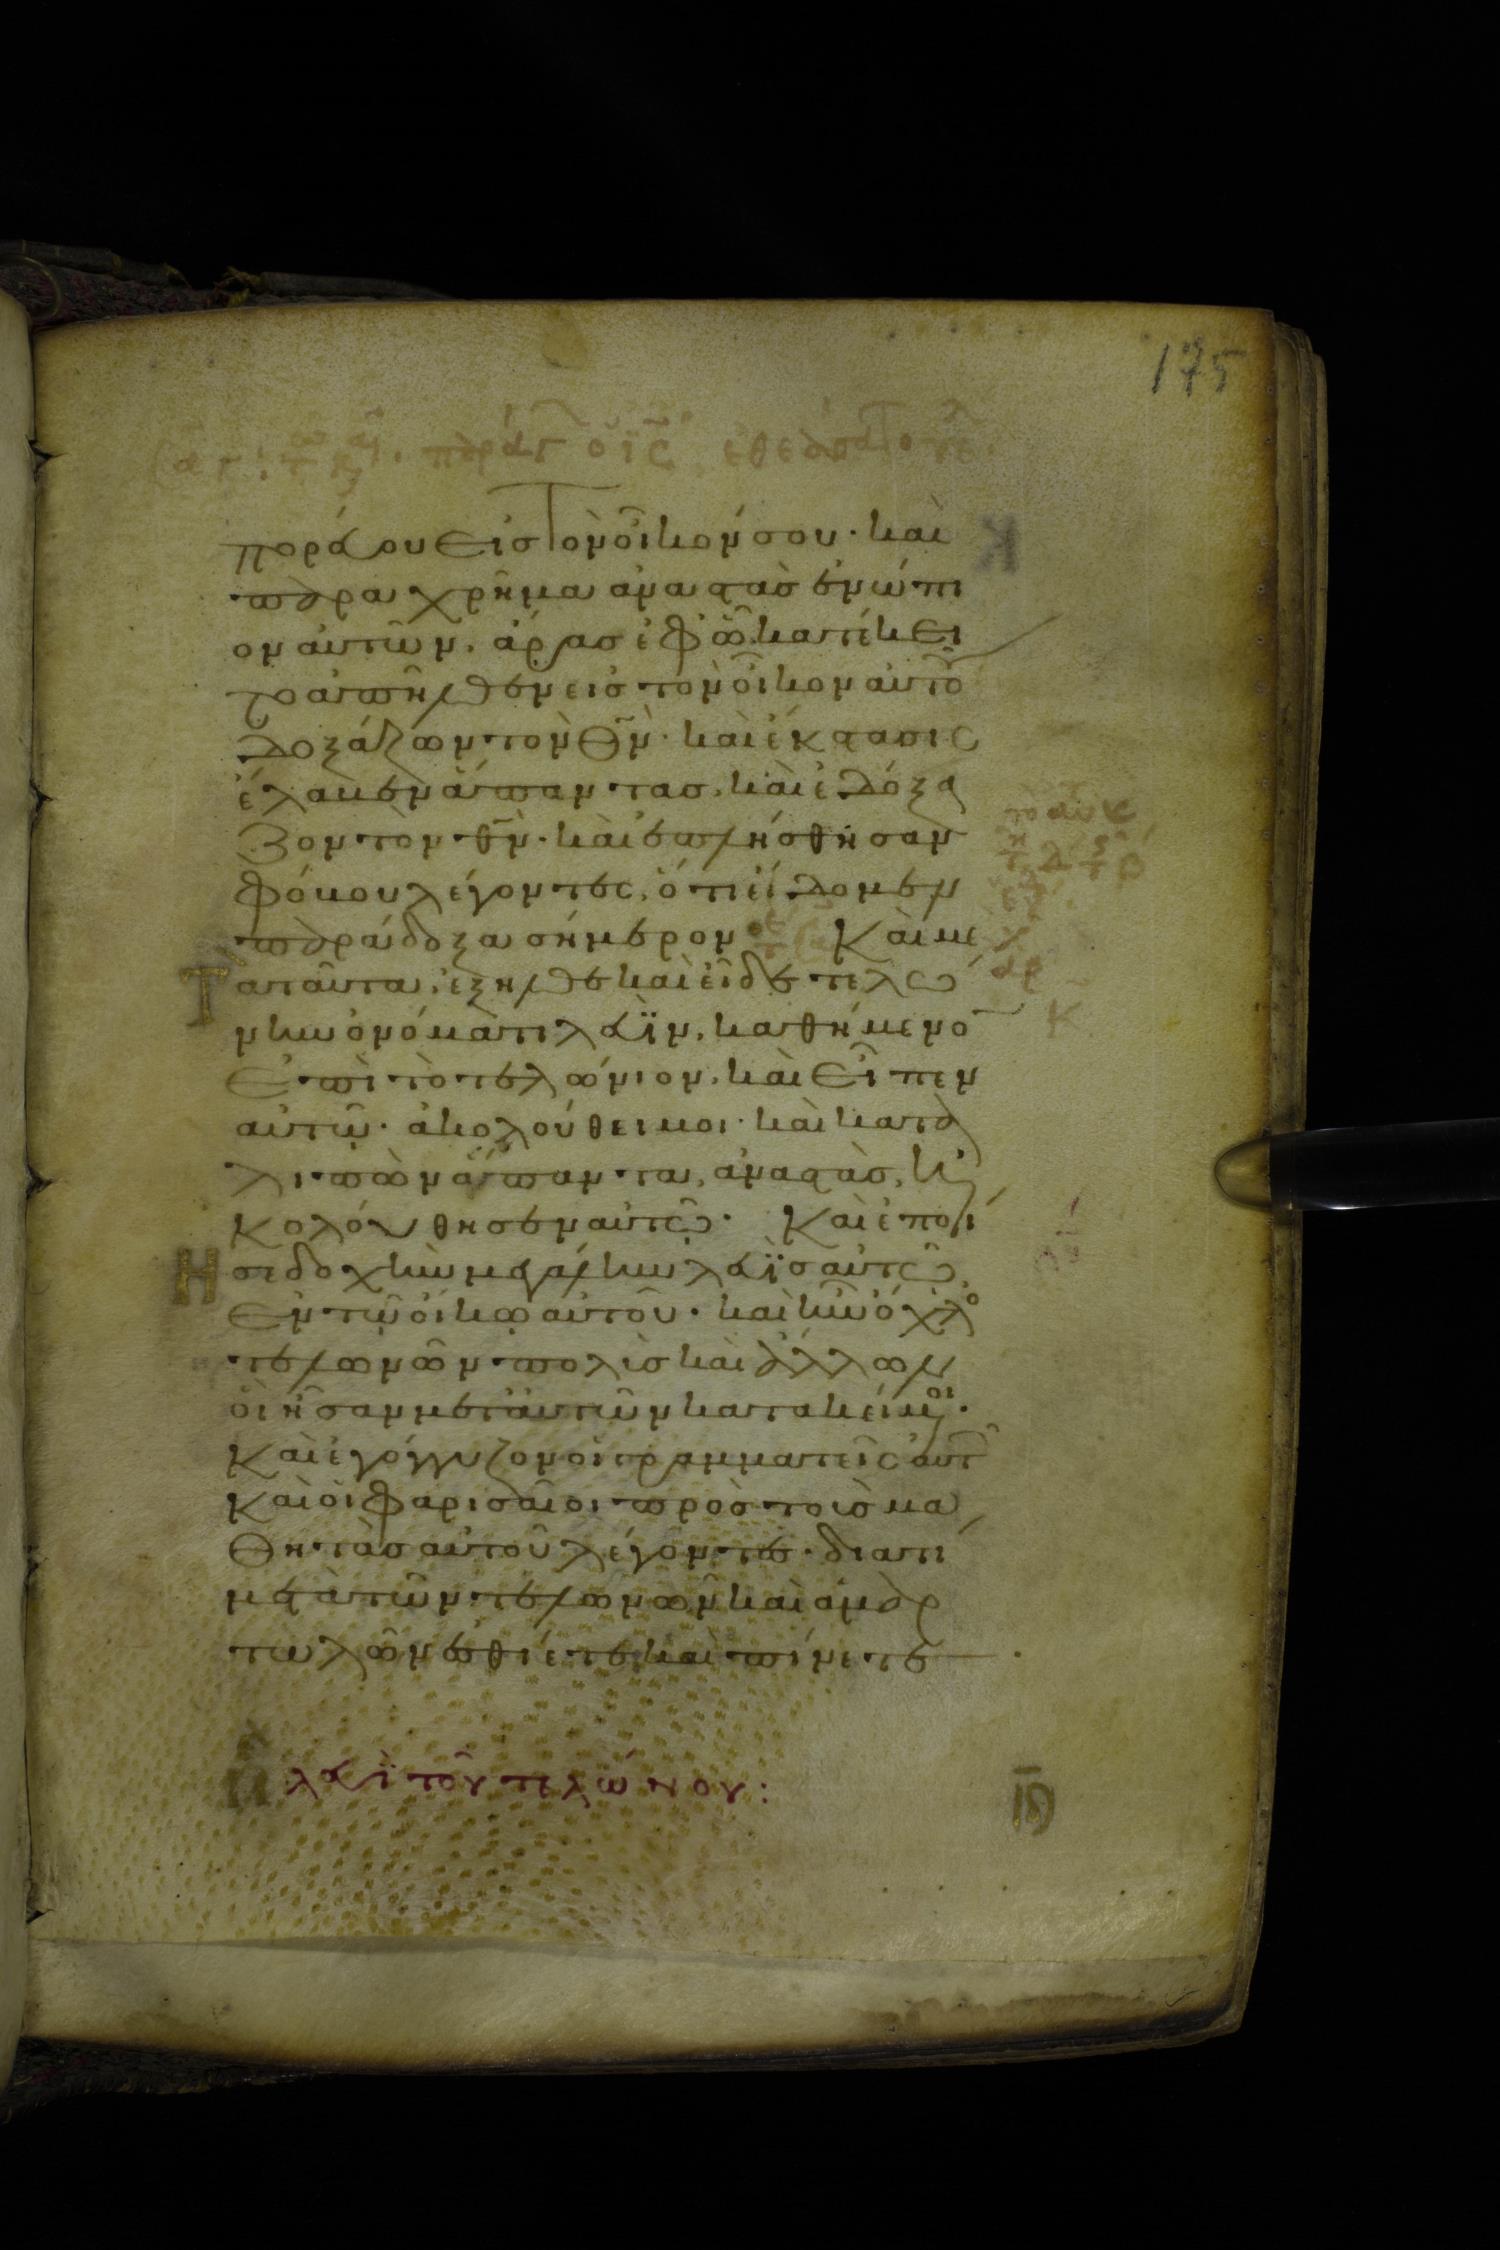 175
πορεύου εἰς τὸν οἶκόν σου· καὶ
παραχρῆμα ἀναστὰς ἐνώπι
ον αὐτῶν, ἄρας ἐφ' ᾧ κατέκει
το ἀπῆλθεν εἰς τὸν οἶκον αὐτοῦ
δοξάζων τὸν θν· καὶ ἔκστασις
ἔλαβεν ἅπαντας, καὶ ἐδόξα
ζον τὸν θν· καὶ ἐπλήσθησαν
φόβου λέγοντες, ὅτι εἴδομεν
παράδοξα σήμερον· Καὶ με
τὰ ταῦτα, ἐξῆλθε καὶ εἶδε τελώ
νην ὀνόματι λευΐν, καθήμενο
ἐπὶ τὸ τελώνιον, καὶ εἶπεν
αὐτῷ· ἀκολούθει μοι· καὶ κατα
λιπὼν ἅπαντα, ἀναστὰς, ἠ
κολούθησεν αὐτῷ· Καὶ ἐποίη
σε δοχὴν μεγάλην λευῒς αὐτῷ
ἐν τῷ οἴκῳ αὐτοῦ· καὶ ἦν ὄχλο
τελωνῶν πολὺς καὶ ἄλλων
οἳ ἦσαν μετ' αὐτῶν κατακείμοι·
Καὶ ἐγόγγυζον οἱ γραμματεῖς αὐτ
καὶ οἱ φαρισαῖοι πρὸς τοὺς μα
θητὰς αὐτοῦ λέγοντες· διατί
μετὰ τῶν τελωνῶν καὶ ἁμαρ
τωλῶν ἐσθίετε καὶ πίνετε
λευῒ τοῦ τελώνου: